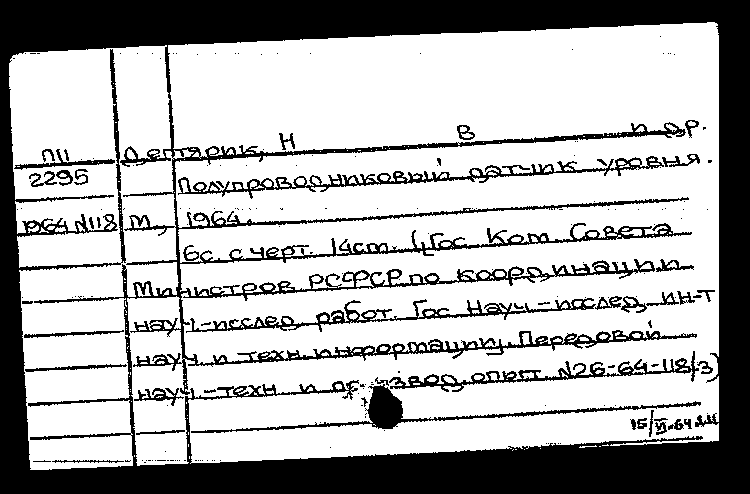 П11 Дегтярик, Н В и др.
2295 Полупроводниковый датчик уровня.
1964 N118 М., 1964.
6с. с черт. 14см. (Гос. Ком. Совета
Министров РСФСР по координации
науч.-исслед. работ. Гос. Науч.-исслед. ин-т
науч. и техн. информации. Передовой
науч.-техн и опыт N26-64-118/3)
15/VI-64